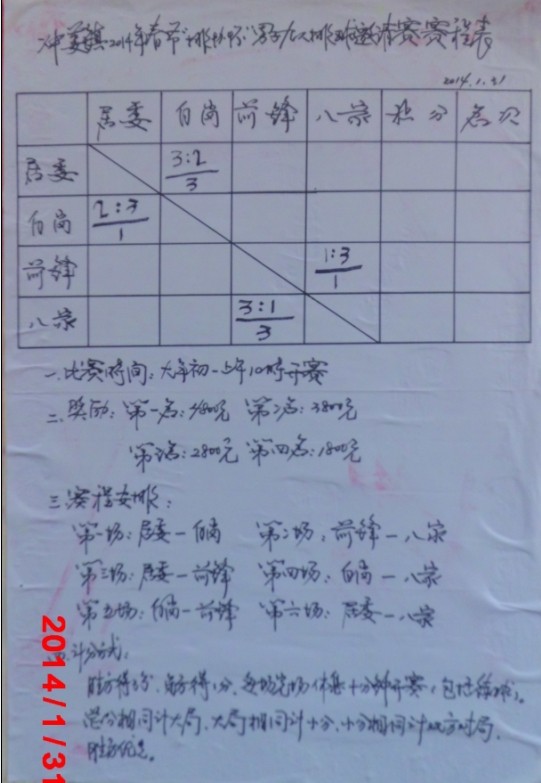 冲蒌镇2014年春节"排协杯"男子九人排球邀请赛赛程表
2014.1.31
居委 白岗 前锋 八家 积分 名次
居委 3:2
3
白岗 2:3
1
前锋 1:3
1
八家 3:1
3
一.比赛时间:大年初一上午10时开赛
二.奖励:第一名:4800元 第二名:3800元
第三名:2800元 第四名:1800元
三.赛程安排:
第一场:居委-白岗 第二场:前锋-八家
第三场:居委-前锋 第四场:白岗-八家
第五场:白岗-前锋 第六场:居委-八家
四.计分方式:
胜方得3分,负方得1分,每场完场休息十分钟开赛
总分相同计大局、大局相同计小分、小分相同计双方对局
胜方优先。
2014/1/31